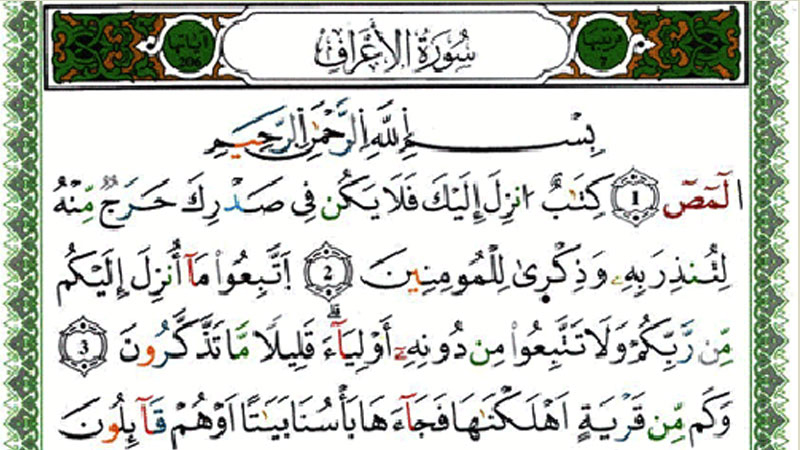 ترتيبها 7 سُورَةُ الأَعْرَافِ آياتها 206
بِسْمِ اِللَّهِ اِلرَّحْمَٰنِ اِلرَّحِيمِ
الٓمٓصٓ 1 كِتَٰبٌ انزِلَ إِلَيْكَ فَلَا يَكُن فِي صَدْرِكَ حَرَجٌ مِّنْهُ
لِتُنذِرَ بِهِۦ وَذِكْرَىٰ لِلْمُومِنِينَ 2 اَتَّبِعُواْ مَآ أُنزِلَ إِلَيْكُم
مِّن رَّبِّكُمْ وَلَا تَتَّبِعُواْ مِن دُونِهِۦٓ أَوْلِيَآءَ قَلِيلًا مَّا تَذَّكَّرُونَ 3
وَكَم مِّن قَرْيَةٍ اَهْلَكْنَٰهَا فَجَآءَهَا بَأْسُنَا بَيَٰتًا اَوْ هُمْ قَآئِلُونَ